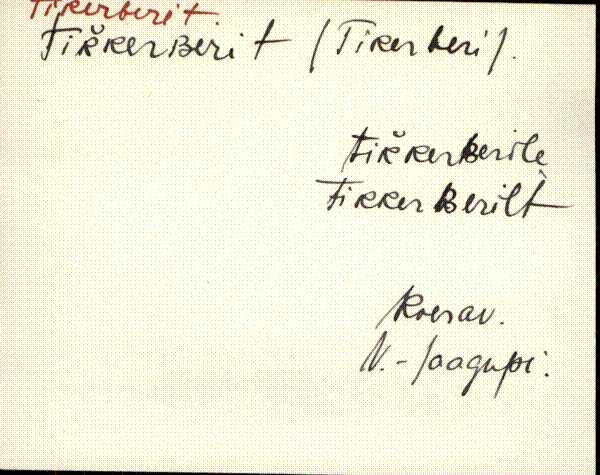 Tikerberit.
Tik̆kerBerit (Tikerberi).
tik̆kerBerile
tikkerBerilt
Roerav.
V.-Jaagupi.